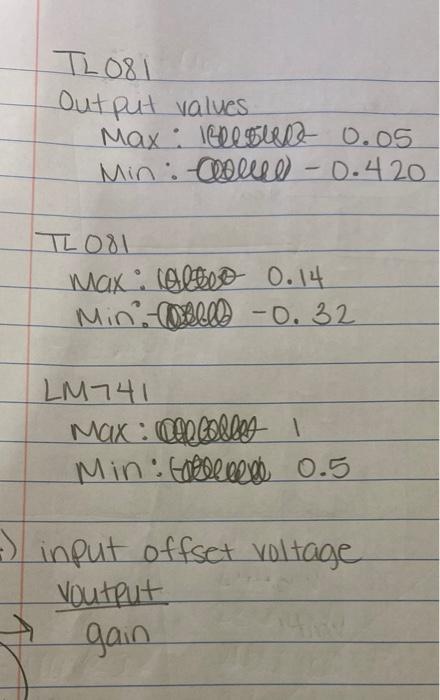 TL081
Output values
Max: 0.05
Min: -0.420
TL081
Max: 0.14
Min: -0.32
LM741
Max: 1
Min: 0.5
) input offset voltage
voutput
→ gain